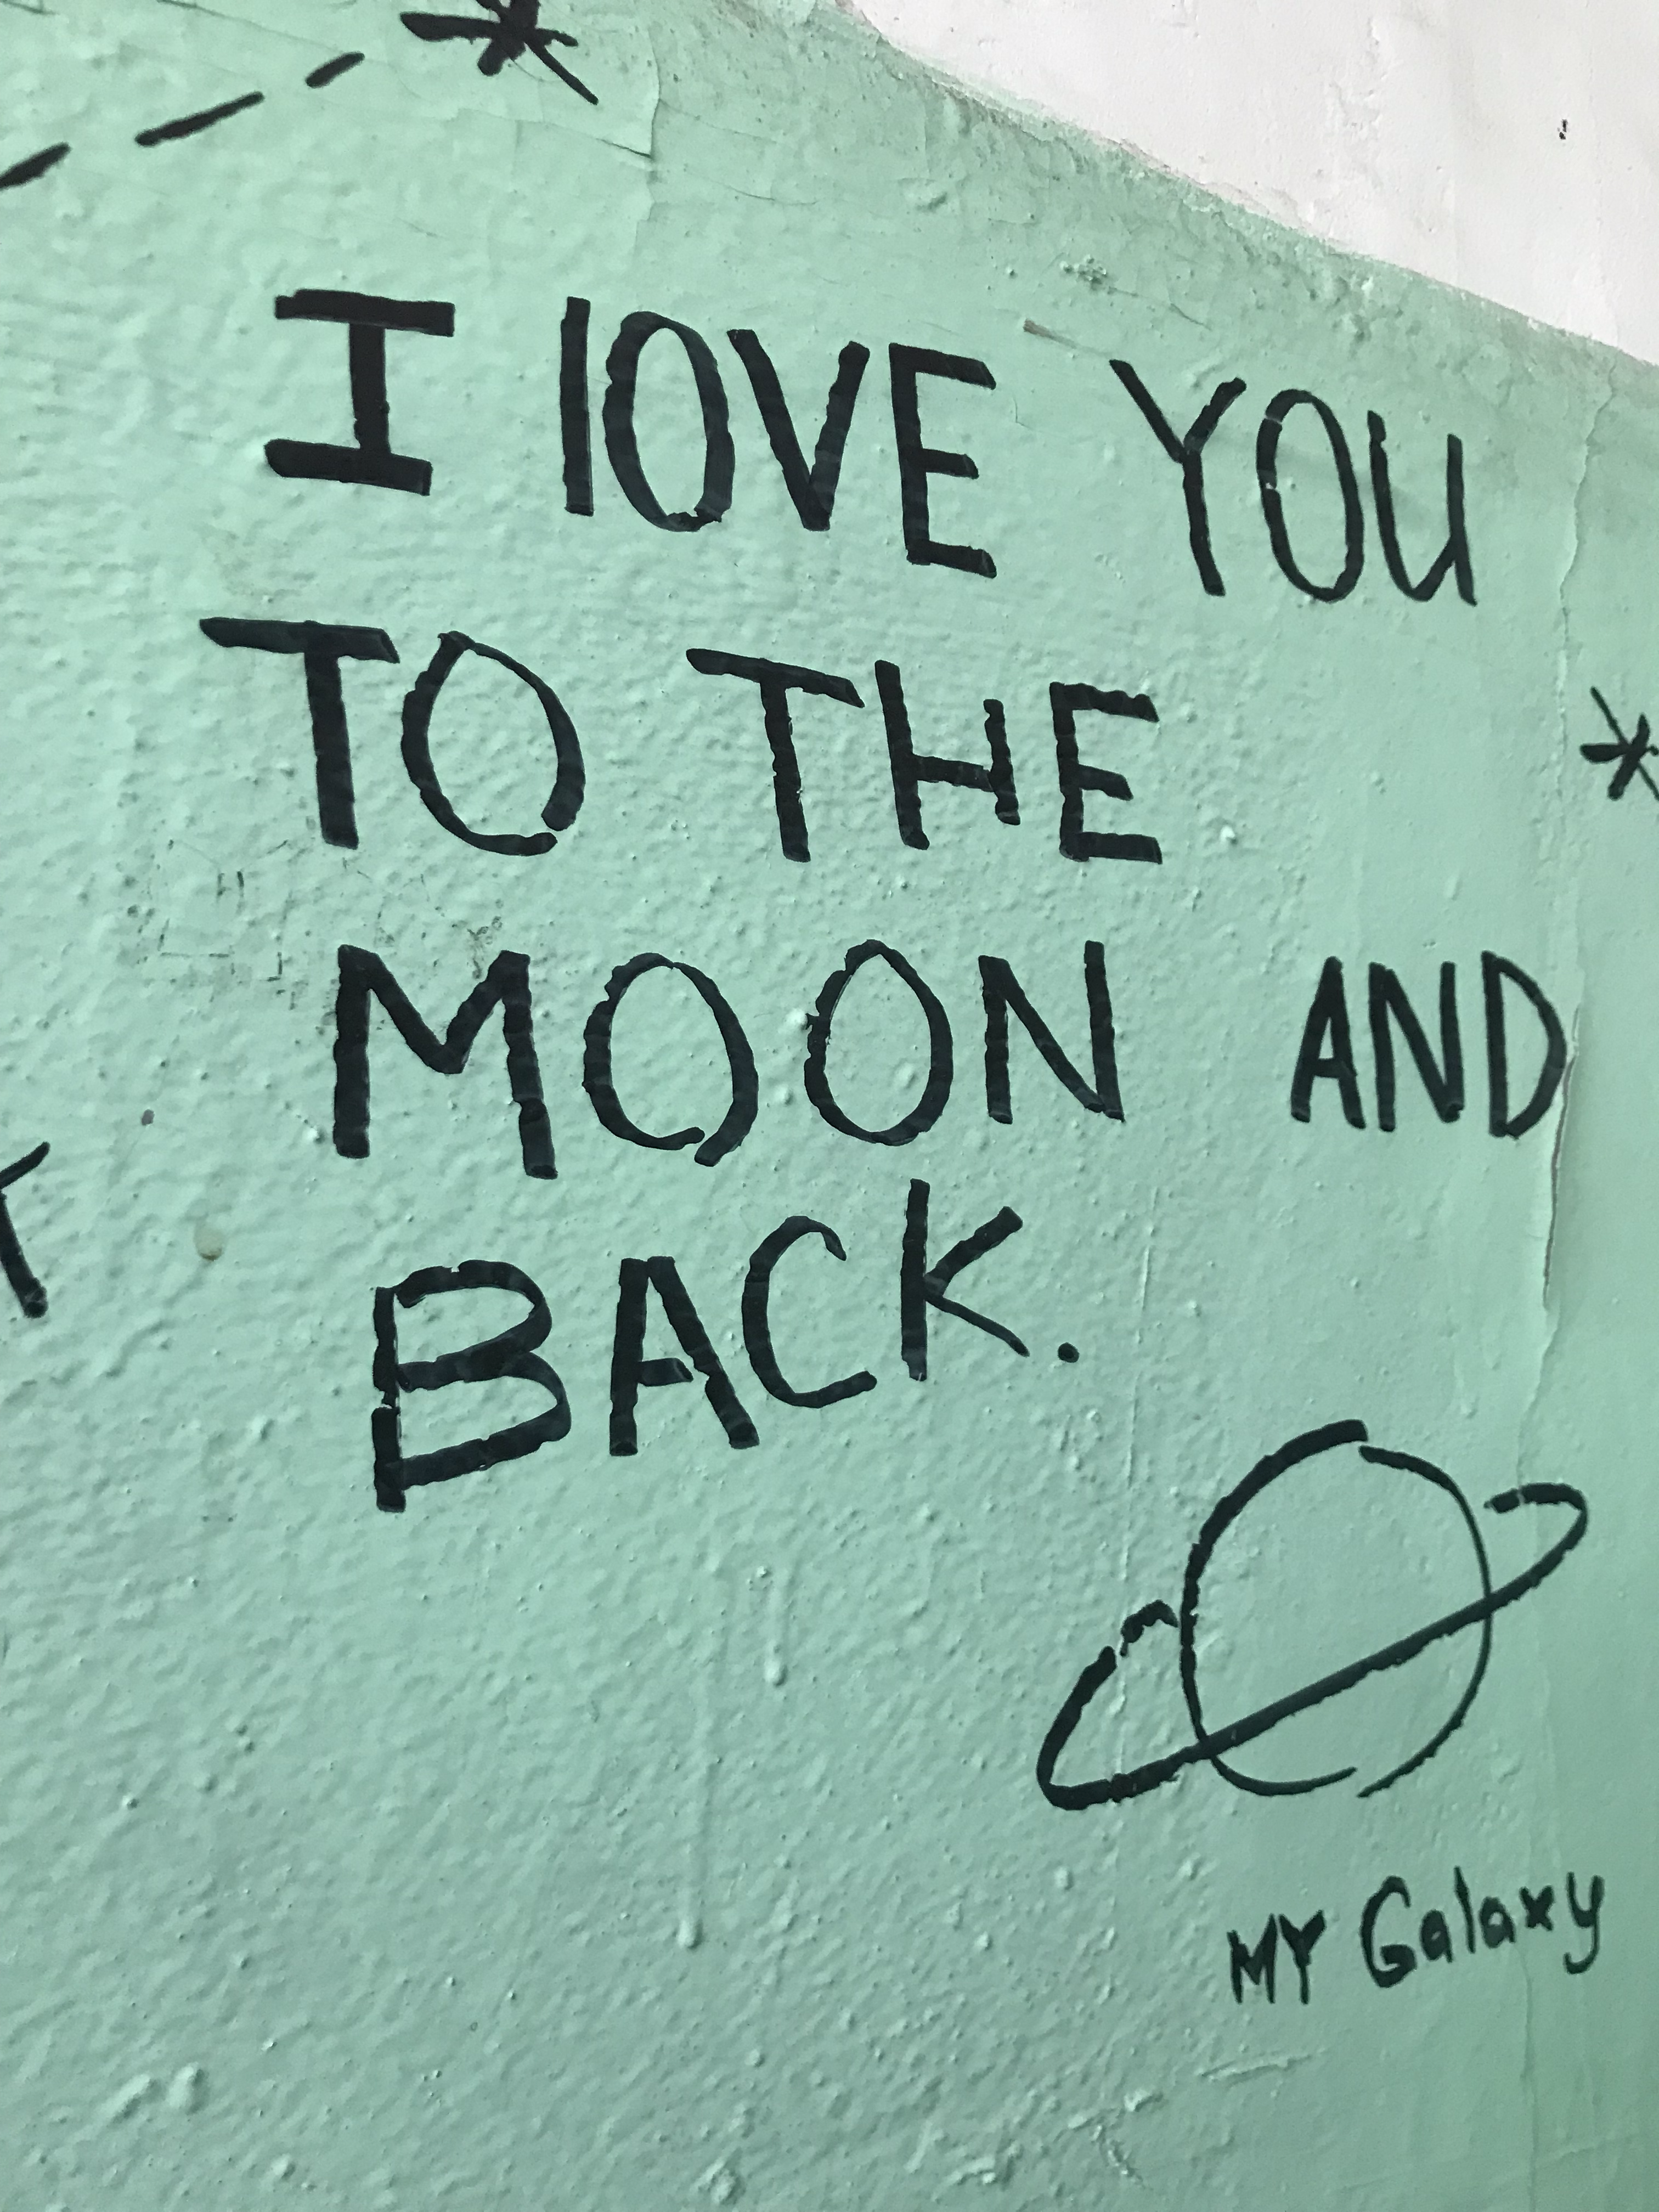 I lOVE YOU
TO THE
MOON AND
BACK.
MY Galaxy